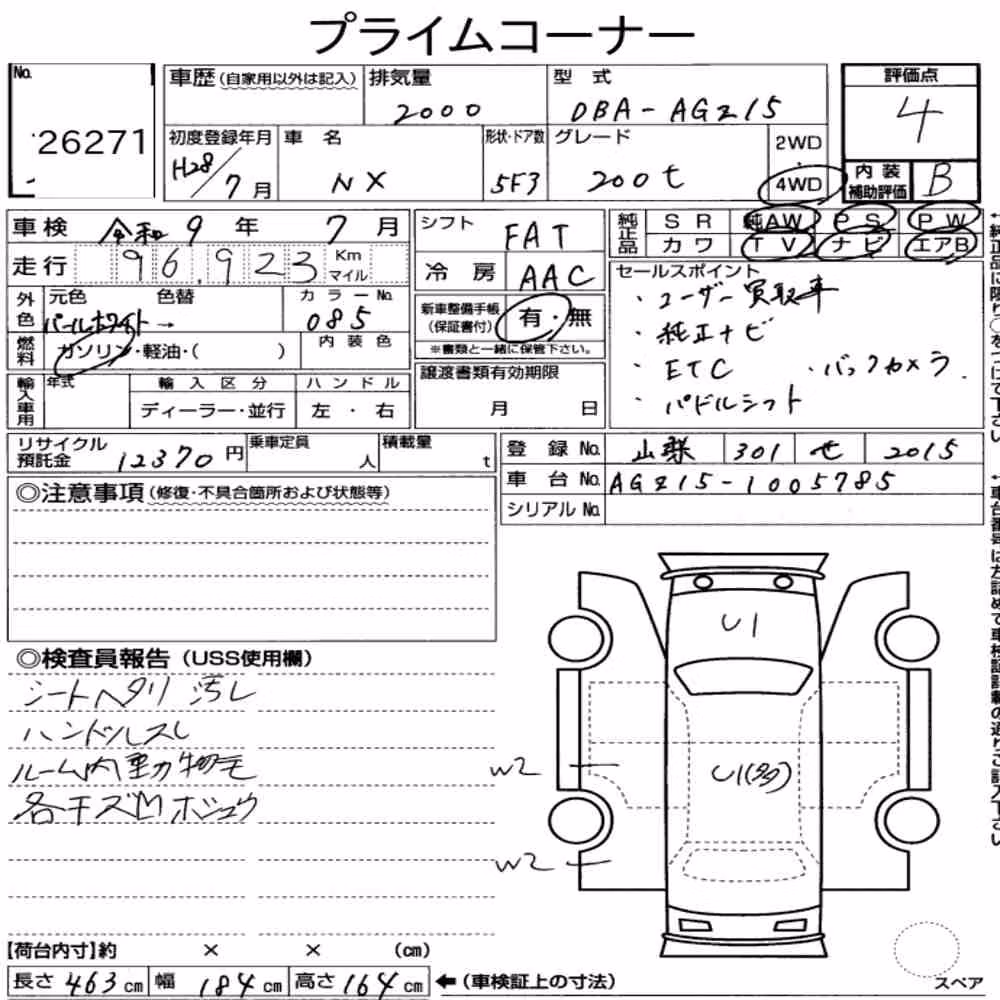 プライムコーナー
No. 26271
車歴(自家用以外は記入) 排気量 2000 型式 DBA-AGZ15
評価点 4
初度登録年月 H28/7月 車名 NX 形状・ドア数 5F3 グレード 200t 2WD 4WD
内装補助評価 B
車検 令和9年7月
走行 96,923 Km マイル
シフト FAT
冷房 AAC
純正品 SR 純AW PS PW
カワ TV ナビ エアB
外色 元色 パールホワイト→ 色替 カラーNo. 085
燃料 ガソリン・軽油・( ) 内装色
新車整備手帳(保証書付) 有・無
※書類と一緒に保管下さい。
セールスポイント
・ユーザー買取車
・純正ナビ
・ETC ・バックカメラ
・パドルシフト
輸入車用 年式 輸入区分 ハンドル
ディーラー・並行 左・右
譲渡書類有効期限
月 日
リサイクル預託金 12370円 乗車定員 人 積載量 t
登録No. 山梨 301 せ 2015
車台No. AGZ15-1005785
シリアルNo.
◎注意事項(修復・不具合箇所および状態等)
◎検査員報告(USS使用欄)
シートヘタリ 汚し
ハンドルスレ
ルーム内動物毛
各キズ凹ホシュウ
U1
U1(多)
W2
W2
【荷台内寸】約 × × (cm)
長さ 463cm 幅 184cm 高さ 164cm ←(車検証上の寸法)
スペア